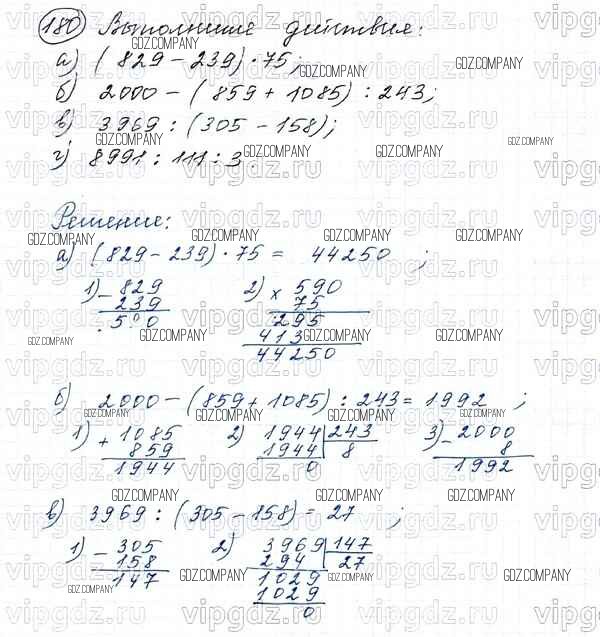 180 Выполните действия:
а) (829 – 239) · 75;
б) 2000 – (859 + 1085) : 243;
в) 3969 : (305 – 158);
г) 8991 : 111 : 3.
Решение:
а) (829 – 239) · 75 = 44250 ;
1) – 829 2) × 590
239 75
590 295
413
44250
б) 2000 – (859 + 1085) : 243 = 1992 ;
1) + 1085 2) 1944 243 3) – 2000
859 1944 8 8
1944 0 1992
в) 3969 : (305 – 158) = 27 ;
1) – 305 2) 3969 147
158 294 27
147 1029
1029
0
GDZ.COMPANY
vipgdz.ru